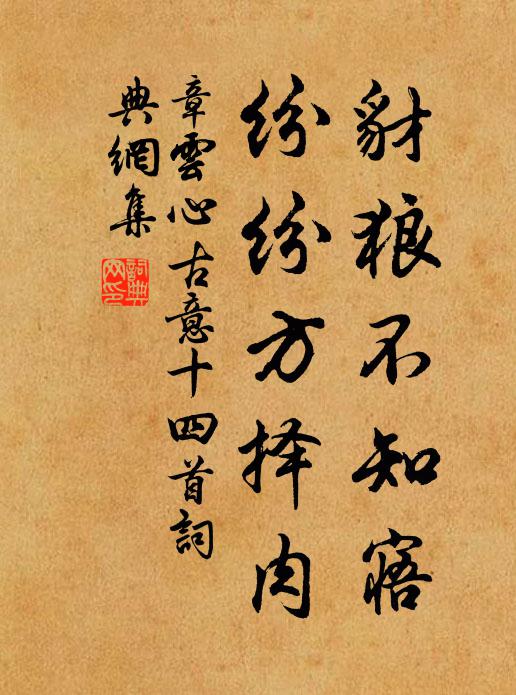 豺狼不知寤
紛紛方择肉
章雲心古意十四首詞
典網集
詞典
网印